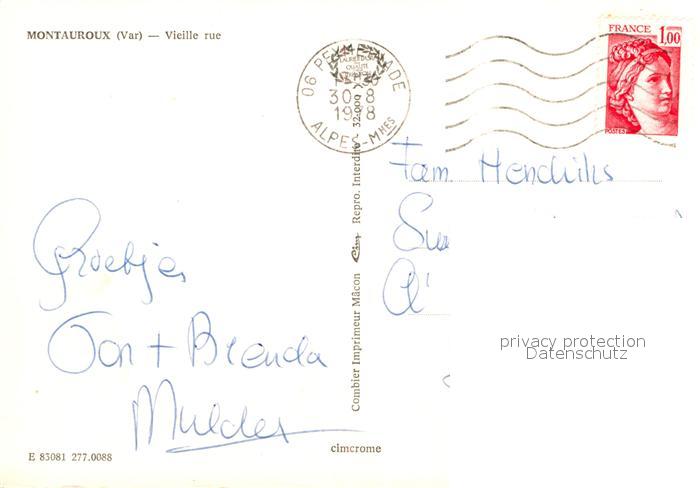 MONTAUROUX (Var) — Vieille rue
FRANCE 1,00
POSTES
06 PEYMEINADE
30-8
19 8
ALPES-MMES
Fam. Hendriks
Groetjes
Ton + Brenda
Mulder
Combier Imprimeur Mâcon Cim Repro. Interdite 32.000
privacy protection
Datenschutz
cimcrome
E 83081 277.0088